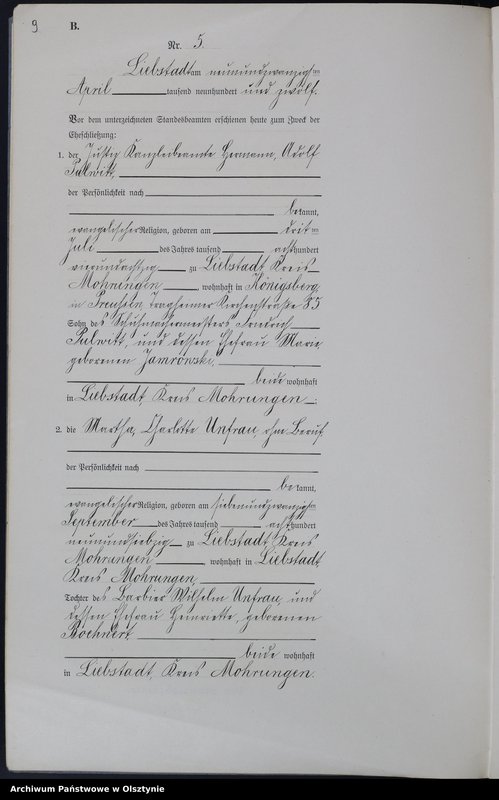 9 B.
Nr. 5.
Liebstadt am neunundzwanzigsten
April tausend neunhundert und zwölf.
Vor dem unterzeichneten Standesbeamten erschienen heute zum Zweck der
Eheschließung:
1. der Justiz Kanzleibeamte Hermann, Adolf
Pulwitt,
der Persönlichkeit nach
bekannt,
evangelischer Religion, geboren am dritten
Juli des Jahres tausend achthundert
vierundachtzig zu Liebstadt Kreis
Mohrungen, wohnhaft in Königsberg
in Preußen, tragheimer Kirchenstraße 85
Sohn des Schuhmachermeisters Friedrich
Pulwitt, und dessen Ehefrau Marie
geborenen Jamrowski,
beide wohnhaft
in Liebstadt, Kreis Mohrungen.
2. die Martha, Charlotte Unfrau, ohne Beruf
der Persönlichkeit nach
bekannt,
evangelischer Religion, geboren am siebenundzwanzigsten
September des Jahres tausend achthundert
neunundsiebzig zu Liebstadt, Kreis
Mohrungen, wohnhaft in Liebstadt,
Kreis Mohrungen,
Tochter des Barbier Wilhelm Unfrau, und
dessen Ehefrau Henriette, geborenen
beide wohnhaft
in Liebstadt, Kreis Mohrungen.
Archiwum Państwowe w Olsztynie